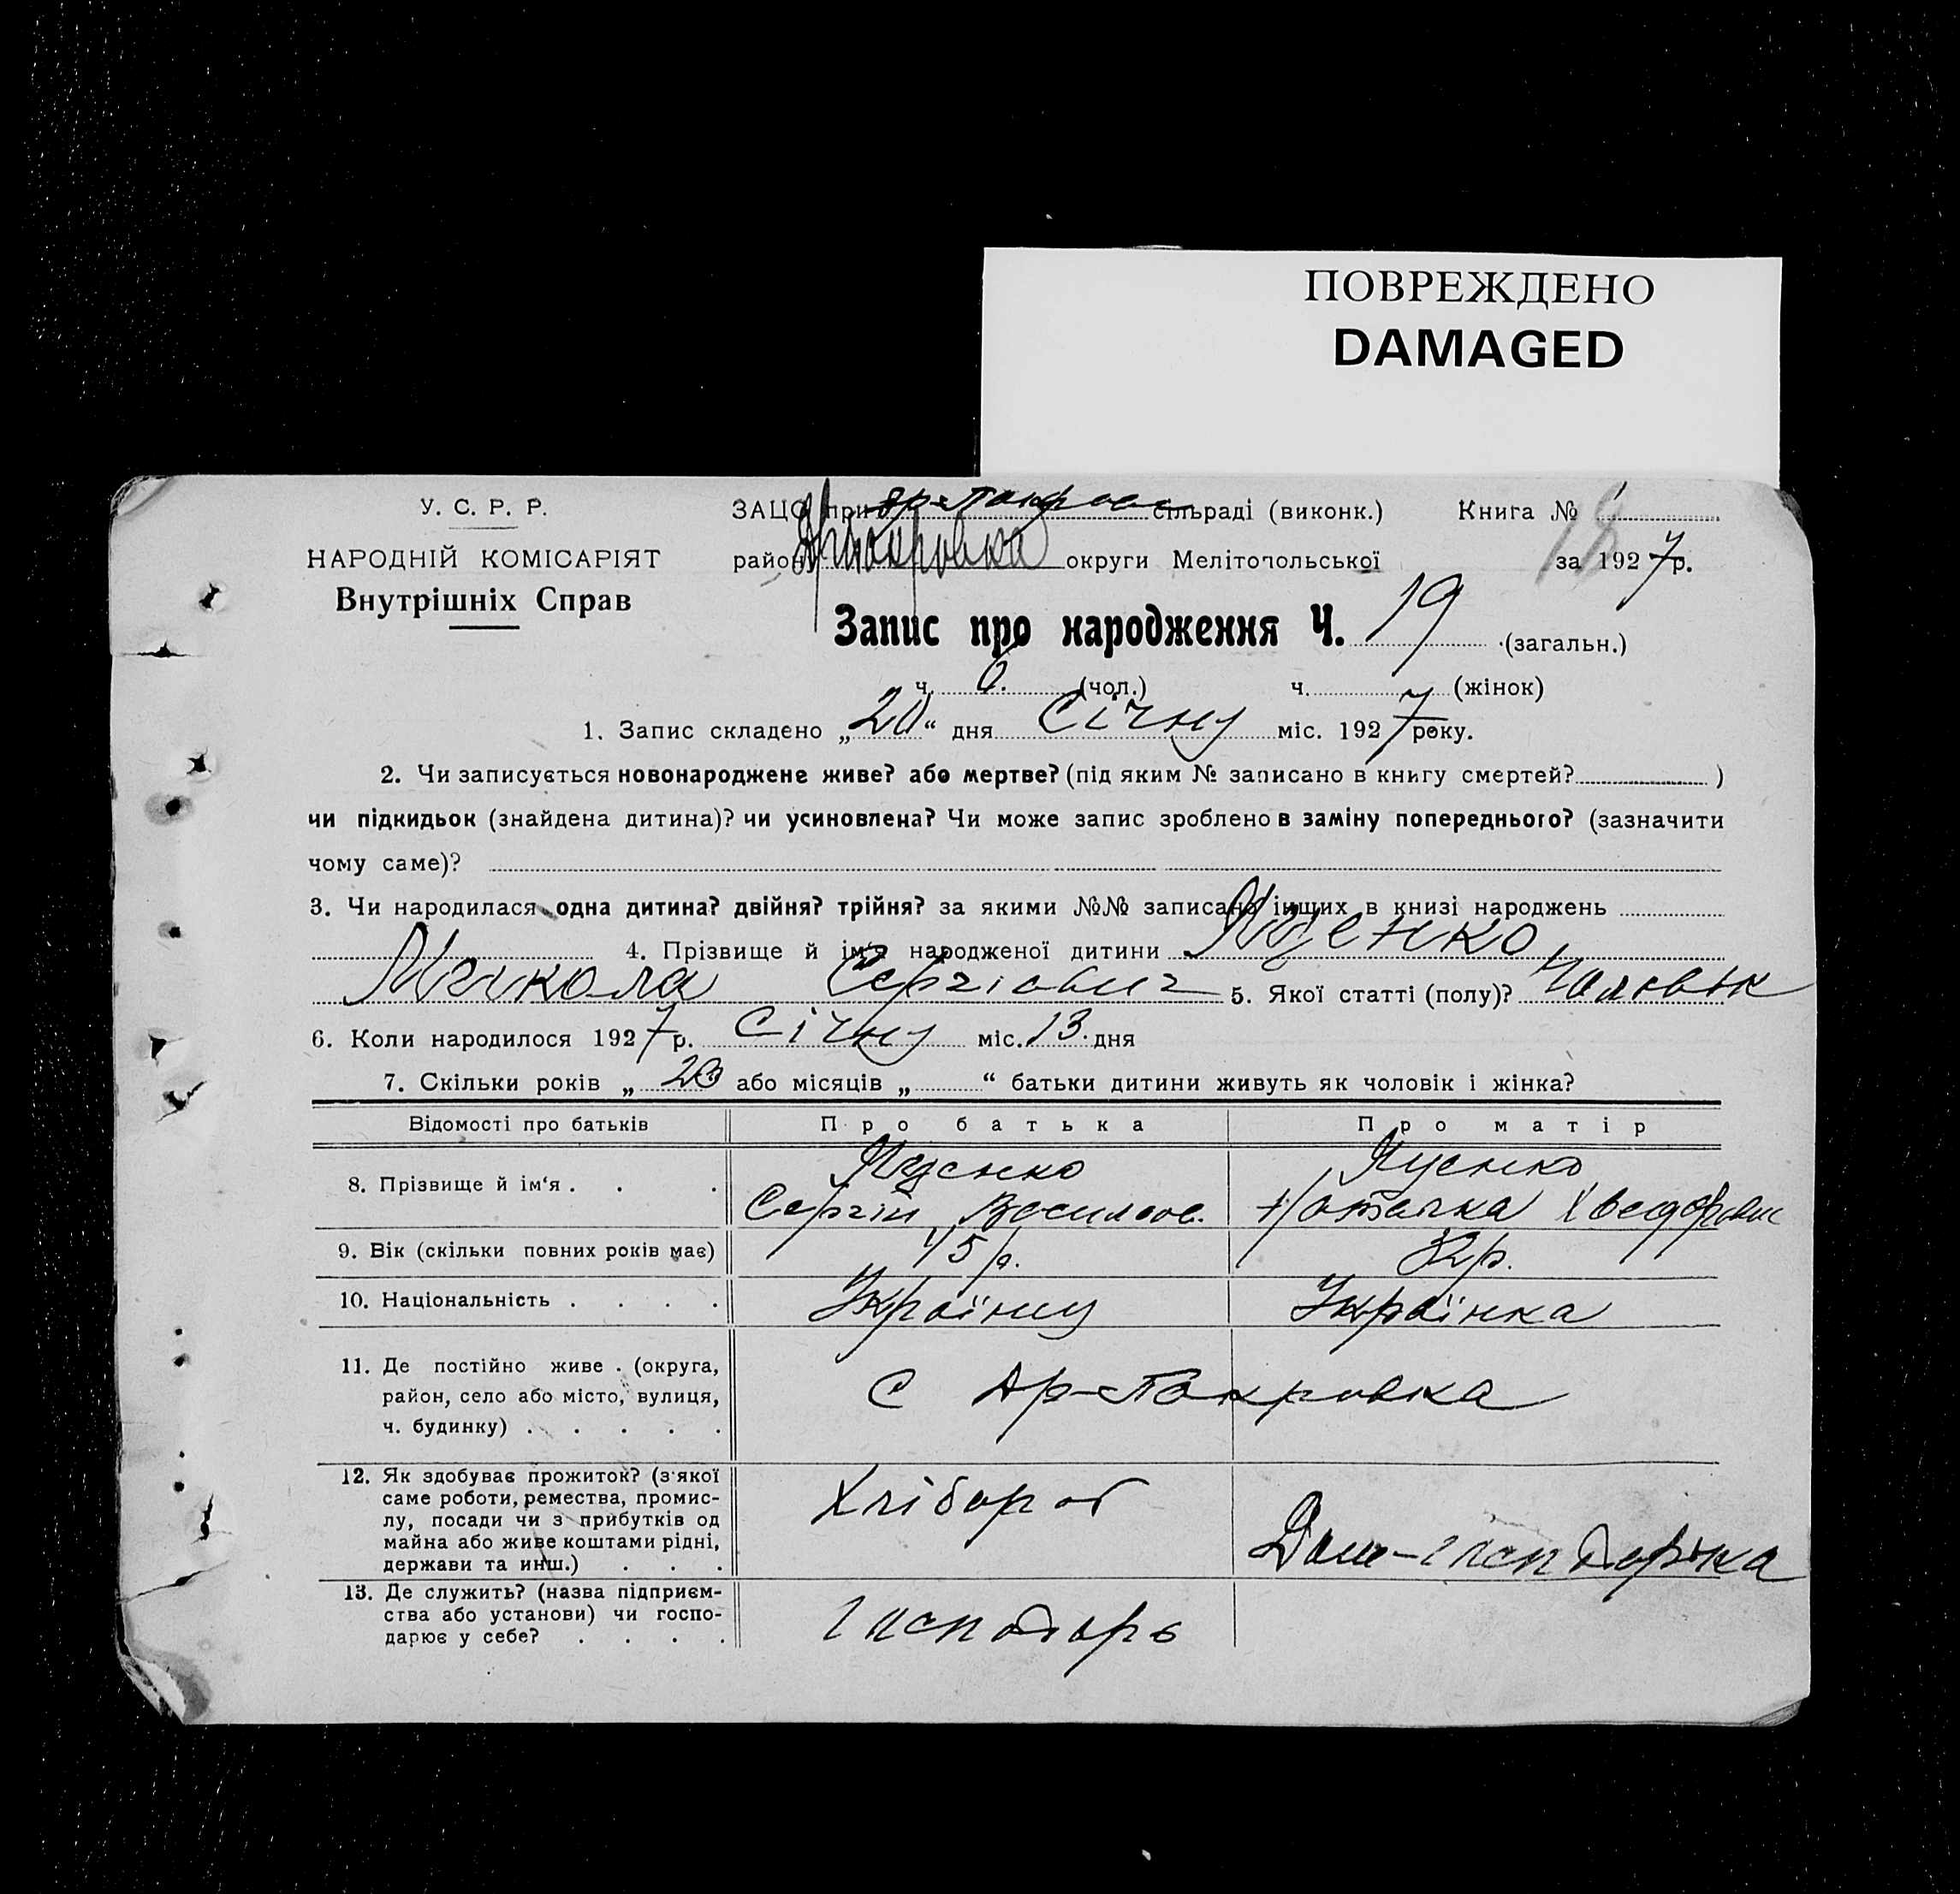 ПОВРЕЖДЕНО
DAMAGED
У. С. Р. Р.
НАРОДНІЙ КОМІСАРІЯТ
Внутрішніх Справ
ЗАЦС при Ар-Покровс сільраді (виконк.) Книга №
район округи Мелітопольської за 1927 р.
Запис про народження Ч. 19 (загальн.)
ч. 6. (чол.) ч. (жінок)
1. Запис складено „20“ дня Січну міс. 1927 року.
2. Чи записується новонароджене живе? або мертве? (під яким № записано в книгу смертей? )
чи підкидьок (знайдена дитина)? чи усиновлена? Чи може запис зроблено в заміну попереднього? (зазначити
чому саме)?
3. Чи народилася одна дитина? двійня? трійня? за якими №№ записано інших в книзі народжень
4. Прізвище й ім'я народженої дитини Яценко
Микола Сергіович 5. Якої статті (полу)? Чоловік
6. Коли народилося 1927 р. Січну міс. 13. дня
7. Скільки років „ “ або місяців „ “ батьки дитини живуть як чоловік і жінка?
Відомості про батьків Про батька Про матір
8. Прізвище й ім'я . . . Яценко Яценко
Сергій Василов.
9. Вік (скільки повних років має) 45 р.
10. Національність . . . . Українц Українка
11. Де постійно живе (округа,
район, село або місто, вулиця,
ч. будинку) . . . . .
С Ар-Покровка
12. Як здобуває прожиток? (з якої
саме роботи, ремества, промис-
лу, посади чи з прибутків од
майна або живе коштами рідні,
держави та инш.) . . .
Хлібороб
Дом-господарка
13. Де служить? (назва підприєм-
ства або установи) чи госпо-
дарює у себе? . . . .
господарь